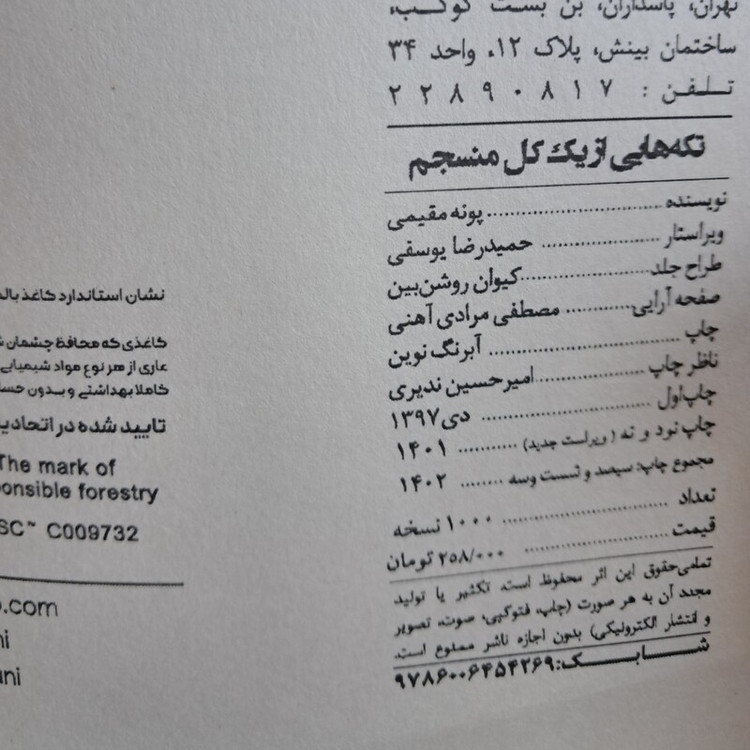 تهران، پاسداران، بن بست کوکب،
ساختمان بینش، پلاک ۱۲، واحد ۳۴
تلفن: ۲۲۸۹۰۸۱۷
تکه‌هایی از یک کل منسجم
نویسنده .......... پونه مقیمی
ویراستار .......... حمیدرضا یوسفی
طراح جلد .......... کیوان روشن‌بین
صفحه آرایی .......... مصطفی مرادی آهنی
چاپ .......... آبرنگ نوین
ناظر چاپ .......... امیرحسین ندیری
چاپ اول .......... دی ۱۳۹۷
چاپ نود و نه (ویراست جدید) .......... ۱۴۰۱
مجموع چاپ: سیصد و شست وسه .......... ۱۴۰۲
تعداد .......... ۱۰۰۰ نسخه
قیمت .......... ۲۵۸/۰۰۰ تومان
تمامی‌حقوق این اثر محفوظ است. تکثیر یا تولید
مجدد آن به هر صورت (چاپ، فتوکپی، صوت، تصویر
و انتشار الکترونیکی) بدون اجازه ناشر ممنوع است.
شابک: ۹۷۸۶۰۰۶۴۵۴۲۶۹
نشان استاندارد کاغذ
کاغذی که محافظ چشمان
عاری از هر نوع مواد شیمیایی
کاملا بهداشتی و بدون
تایید شده در
The mark of
onsible forestry
SC™ C009732
.com
ni
uni